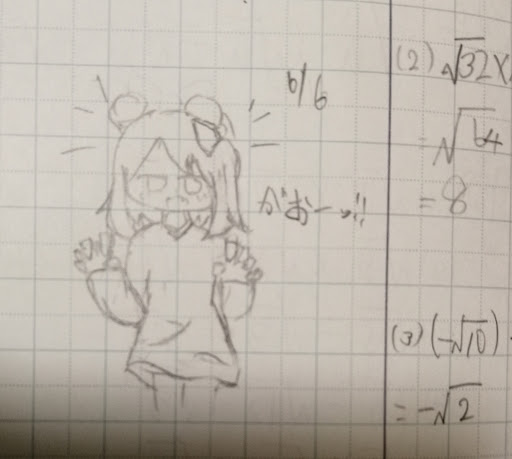 6/6
がおーっ!!
(2) √32×
= √64
= 8
(3) (-√10)
= -√2